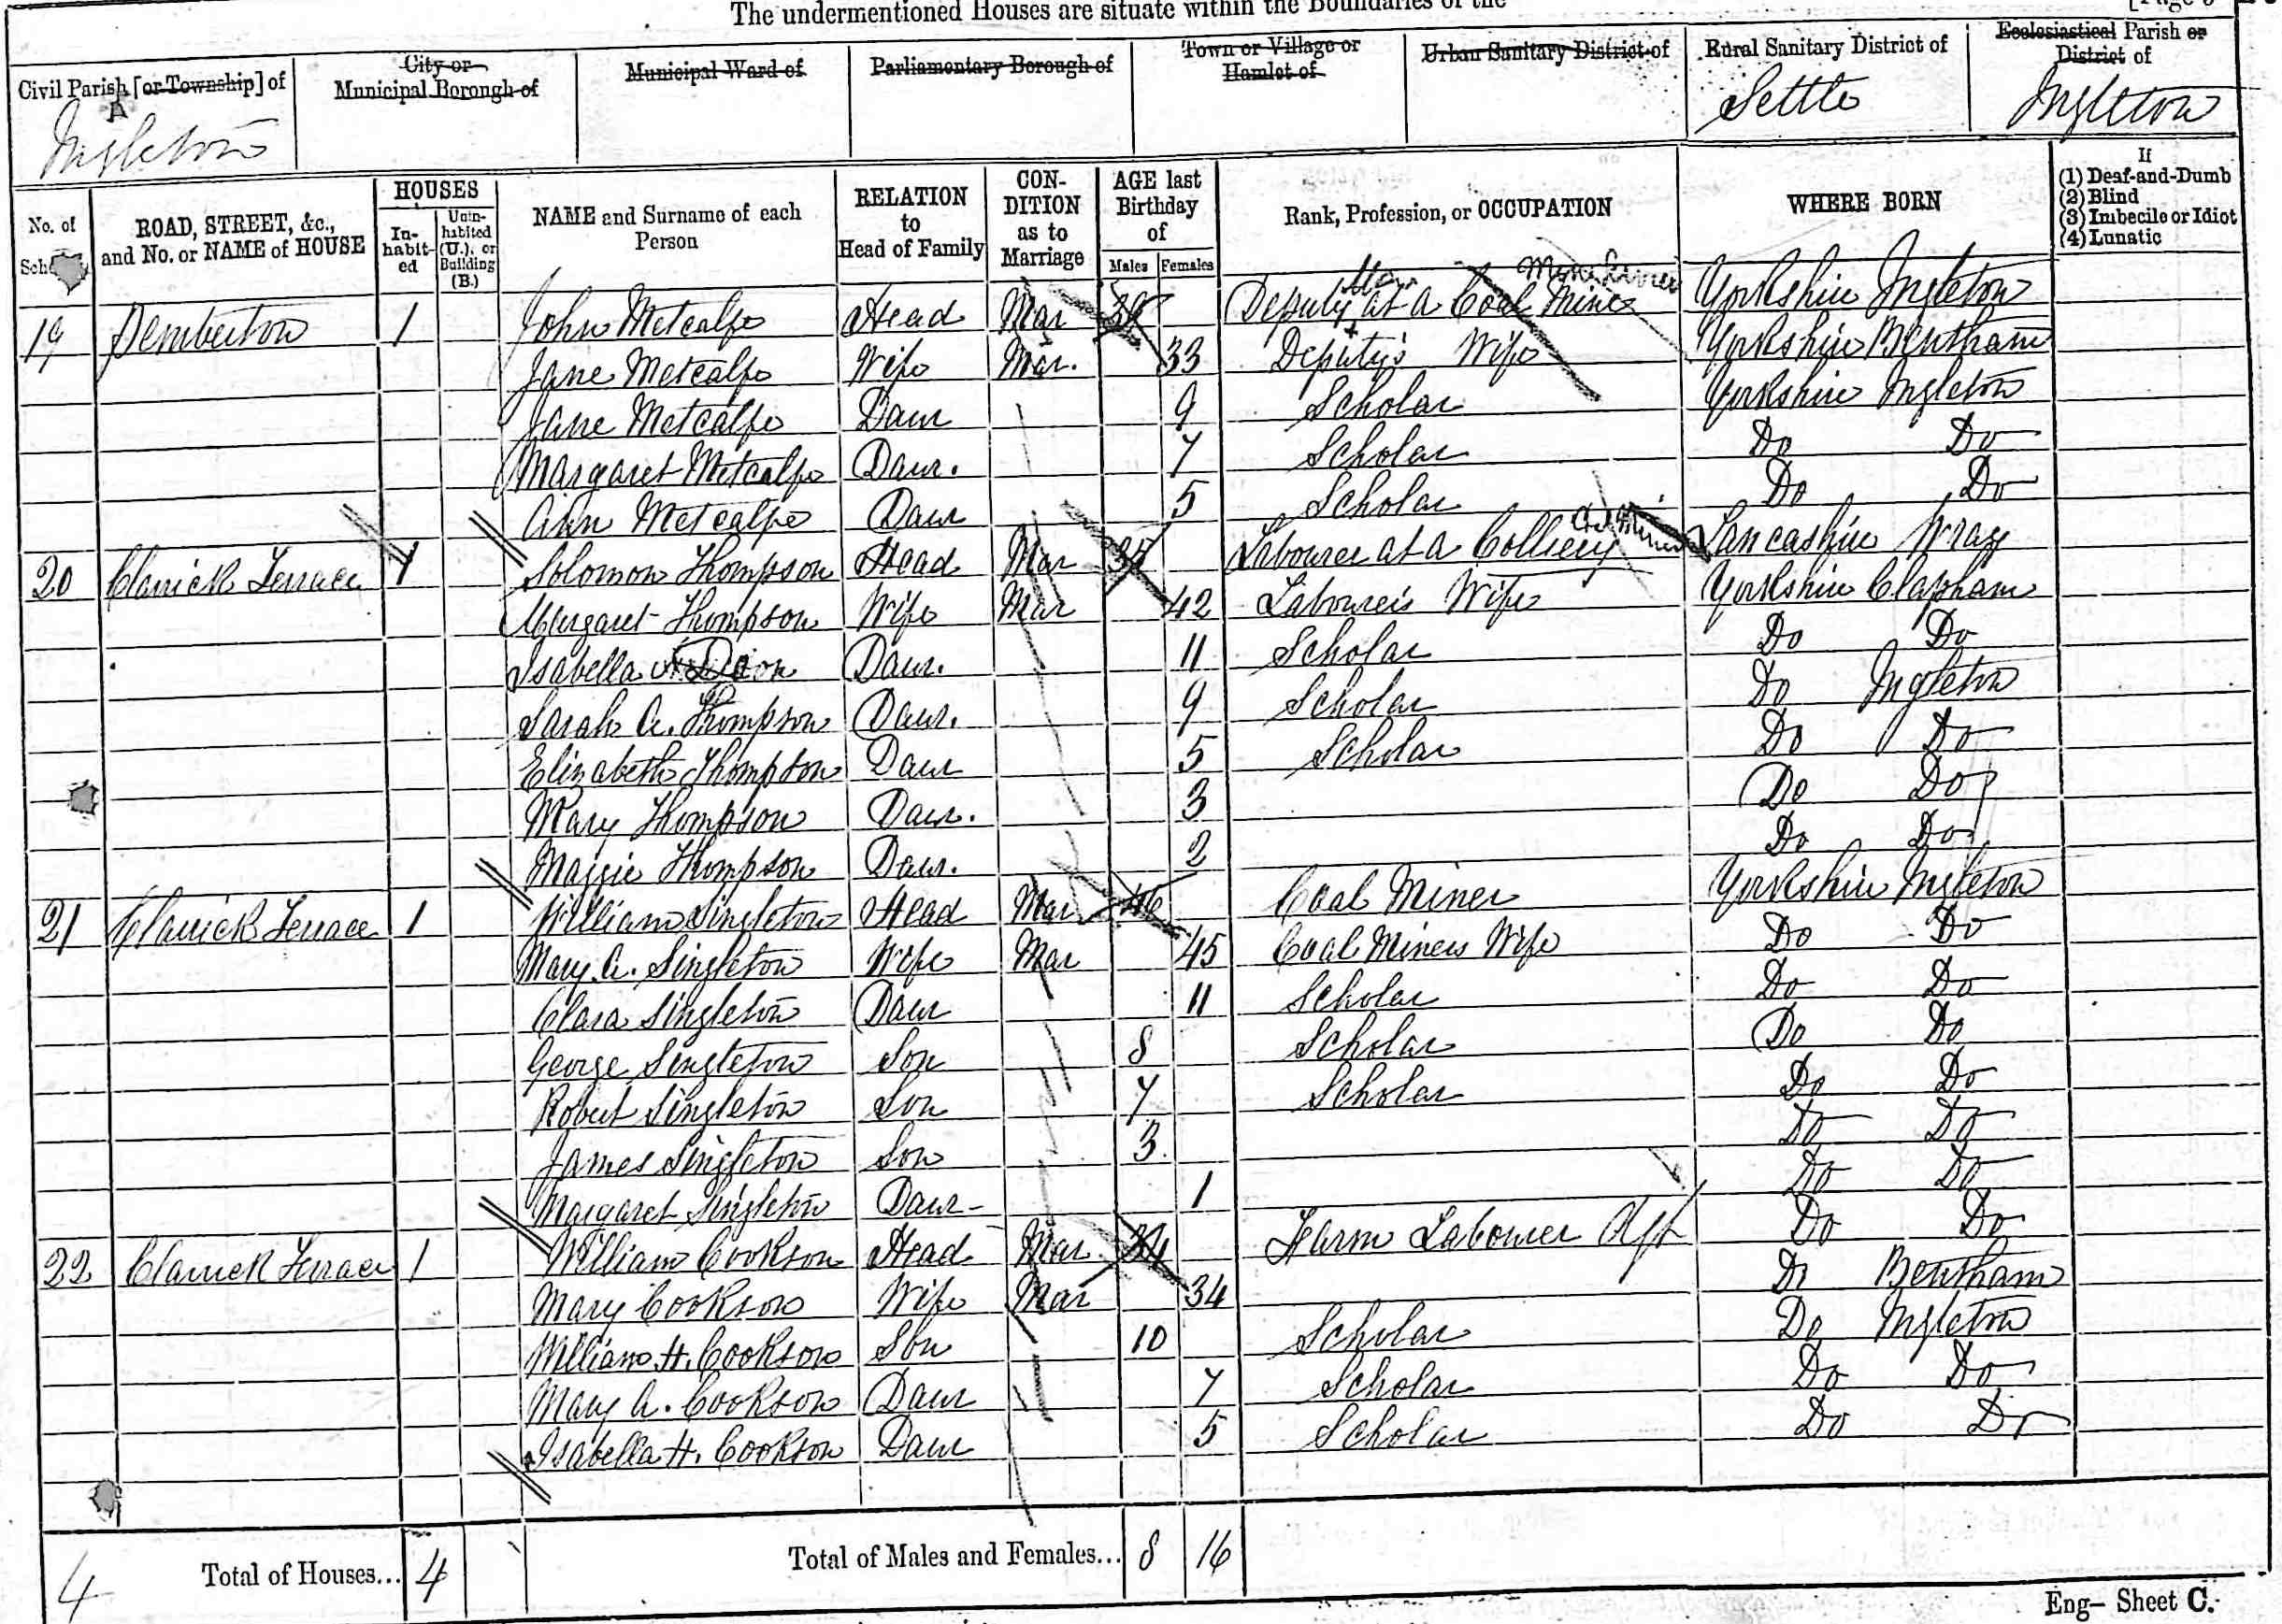 The undermentioned Houses are situate within the Boundaries of the
Civil Parish [or Township] of
City or Municipal Borough of
Municipal Ward of
Parliamentary Borough of
Town or Village or Hamlet of
Urban Sanitary District of
Rural Sanitary District of
Ecclesiastical Parish or District of
Ingleton Settle Ingleton
No. of
ROAD, STREET, &c., and No. or NAME of HOUSE
HOUSES
In-habit-ed
Unin-habited (U.), or Building (B.)
NAME and Surname of each Person
RELATION to Head of Family
CON-DITION as to Marriage
AGE last Birthday of
Males Females
Rank, Profession, or OCCUPATION
WHERE BORN
If
(1) Deaf-and-Dumb
(2) Blind
(3) Imbecile or Idiot
(4) Lunatic
19 Pemberton 1 John Metcalfe Head Mar Deputy at a Coal Mine Yorkshire Ingleton
Jane Metcalfe Wife Mar. 33 Deputy's Wife Yorkshire Bentham
Jane Metcalfe Daur 9 Scholar Yorkshire Ingleton
Margaret Metcalfe Daur. 7 Scholar Do Do
Ann Metcalfe Daur 5 Scholar Do Do
20 Clarrick Terrace 1 Solomon Thompson Head Mar Labourer at a Colliery Lancashire Wray
Margaret Thompson Wife Mar 42 Labourers Wife Yorkshire Clapham
Isabella Daur. 11 Scholar Do Do
Sarah A. Thompson Daur. 9 Scholar Do Ingleton
Elizabeth Thompson Daur 5 Scholar Do Do
Mary Thompson Daur. 3 Do Do
Maggie Thompson Daur. 2 Do Do
21 Clarrick Terrace 1 William Singleton Head Mar 46 Coal Miner Yorkshire Ingleton
Mary A. Singleton Wife Mar 45 Coal Miners Wife Do Do
Clara Singleton Daur 11 Scholar Do Do
George Singleton Son 8 Scholar Do Do
Robert Singleton Son 7 Scholar Do Do
James Singleton Son 3 Do Do
Margaret Singleton Daur 1 Do Do
22 Clarrick Terrace 1 William Cookson Head Mar Farm Labourer Do Do
Mary Cookson Wife Mar 34 Do Bentham
William H. Cookson Son 10 Scholar Do Ingleton
Mary A. Cookson Daur 7 Scholar Do Do
Isabella H. Cookson Daur 5 Scholar Do Do
4 Total of Houses... 4 Total of Males and Females... 8 16
Eng- Sheet C.